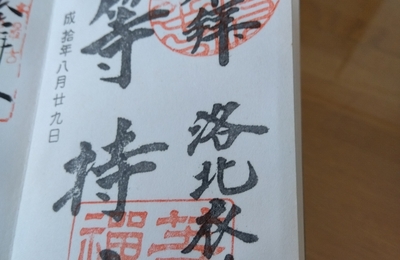 拜 洛北衣
等持
成拾年八月廿九日
禪